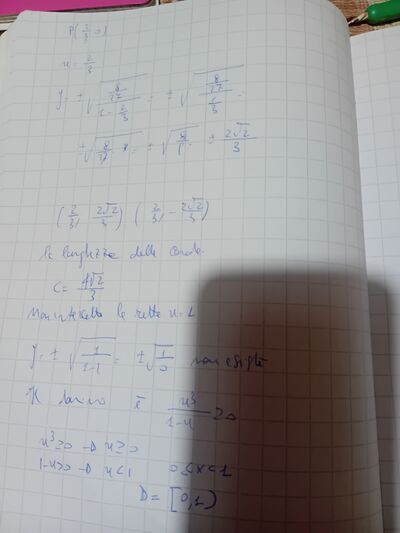 P(2/3, 0)
x = 2/3
y = ±√((8/27)/(1 - 2/3)) = ±√((8/27)/(1/3)) =
±√(8/27 · = ±√(8/ = ± 2√2/3
(2/3, 2√2/3) (2/3, - 2√2/3)
la lunghezza della corda
C = 4√2/3
Non intercetta la retta x = 1
y = ±√(1/(1-1)) = ±√(1/0) non esiste
Il dominio è x³/(1-x) ≥ 0
x³ ≥ 0 → x ≥ 0
1-x > 0 → x < 1 0 ≤ x < 1
D = [0,1)